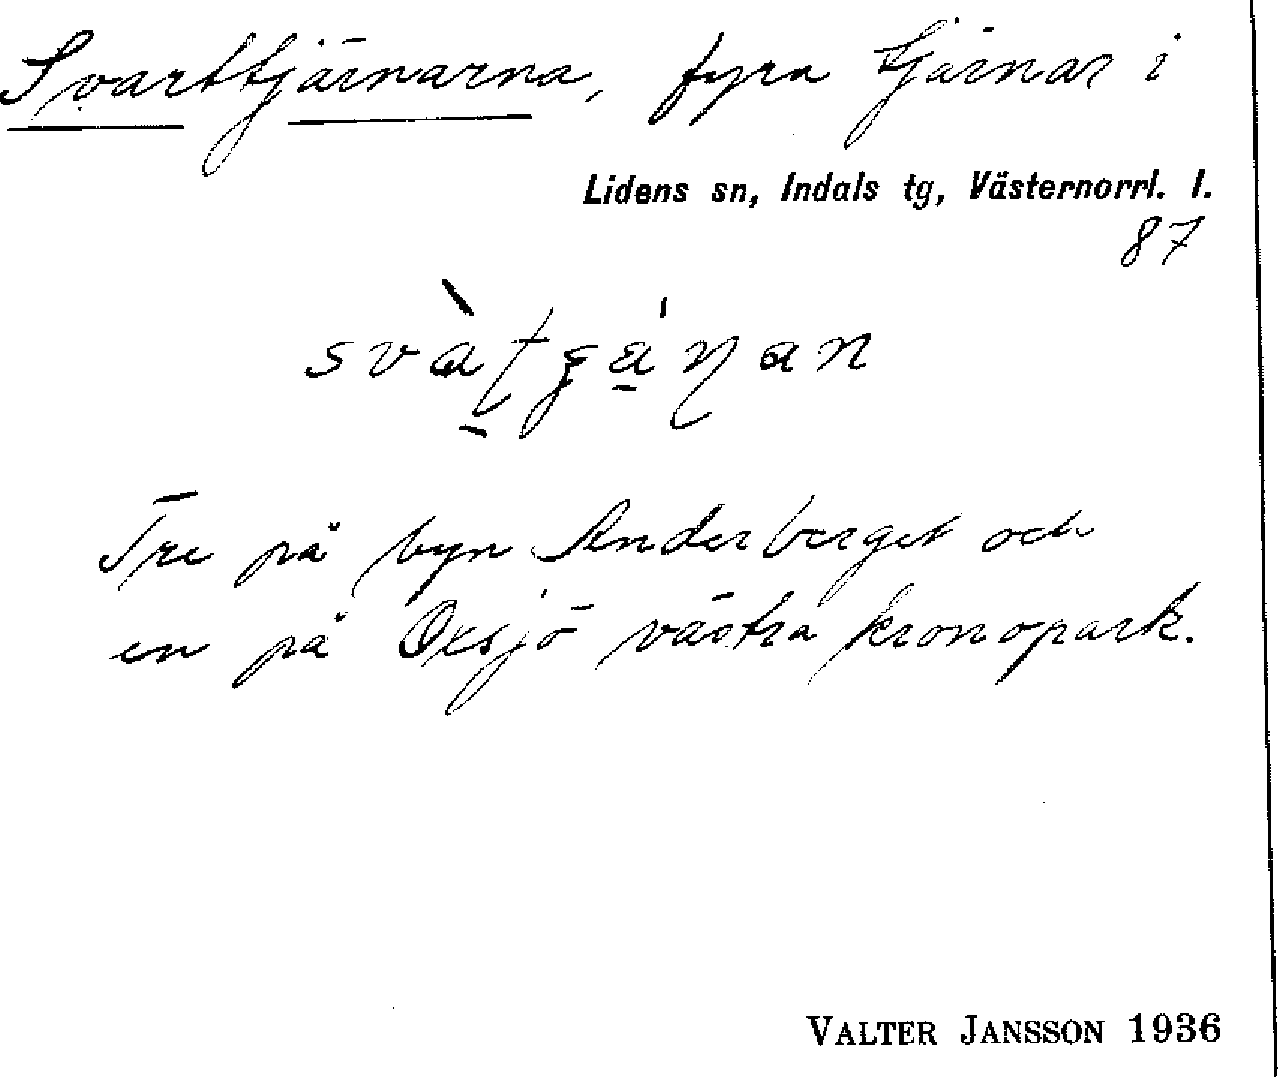 Svarttjärnarna, fyra tjärnar i
Lidens sn, Indals tg, Västernorrl. l.
87
Tre på byn Anderberget och
en på Oxsjö västra kronopark.
VALTER JANSSON 1936